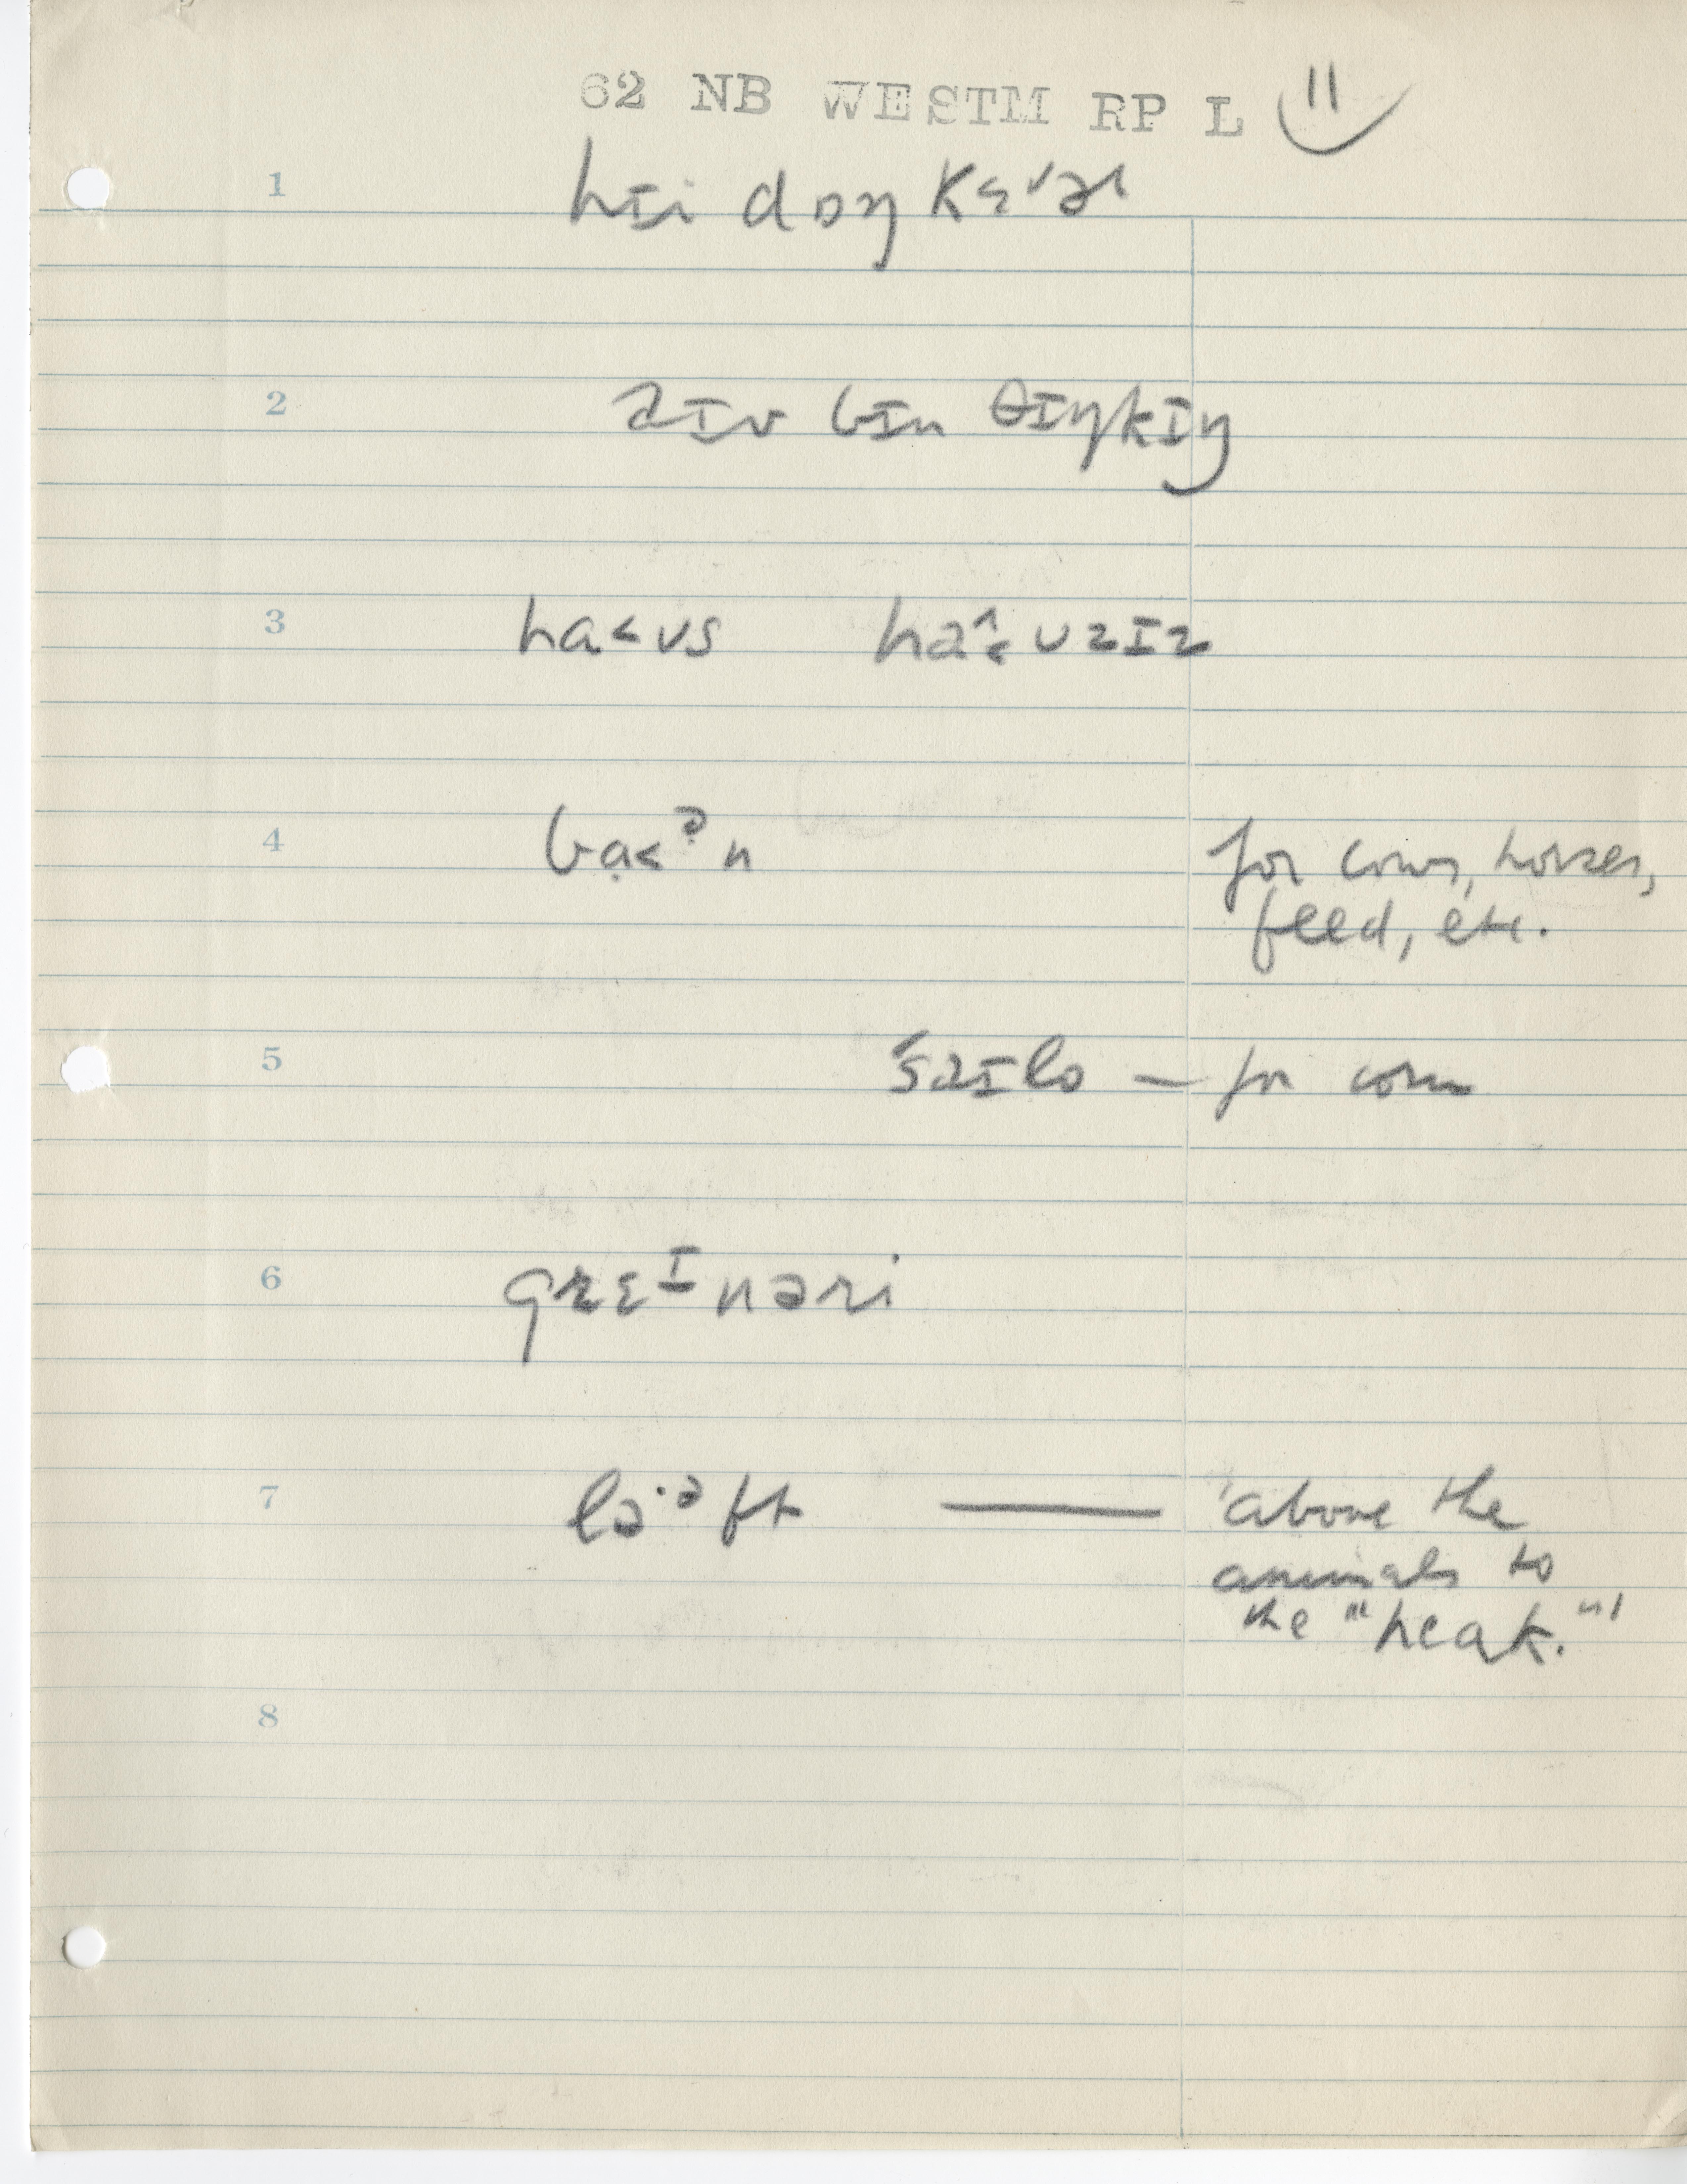 62 NB WESTM RP L 11
1 hɪi doŋ kɛ˅ əɹ
2 aɪv bɪn θɪŋkɪŋ
3 ha<ʊs ha^<ʊzɪz
4 bɑ̣<ᵊn for cows, horses,
feed, etc.
5 ˈsaɪlo — for corn
6 grɛᴵnəri
7 lɔ·ᵊft — 'above the
animals to
the "peak."'
8